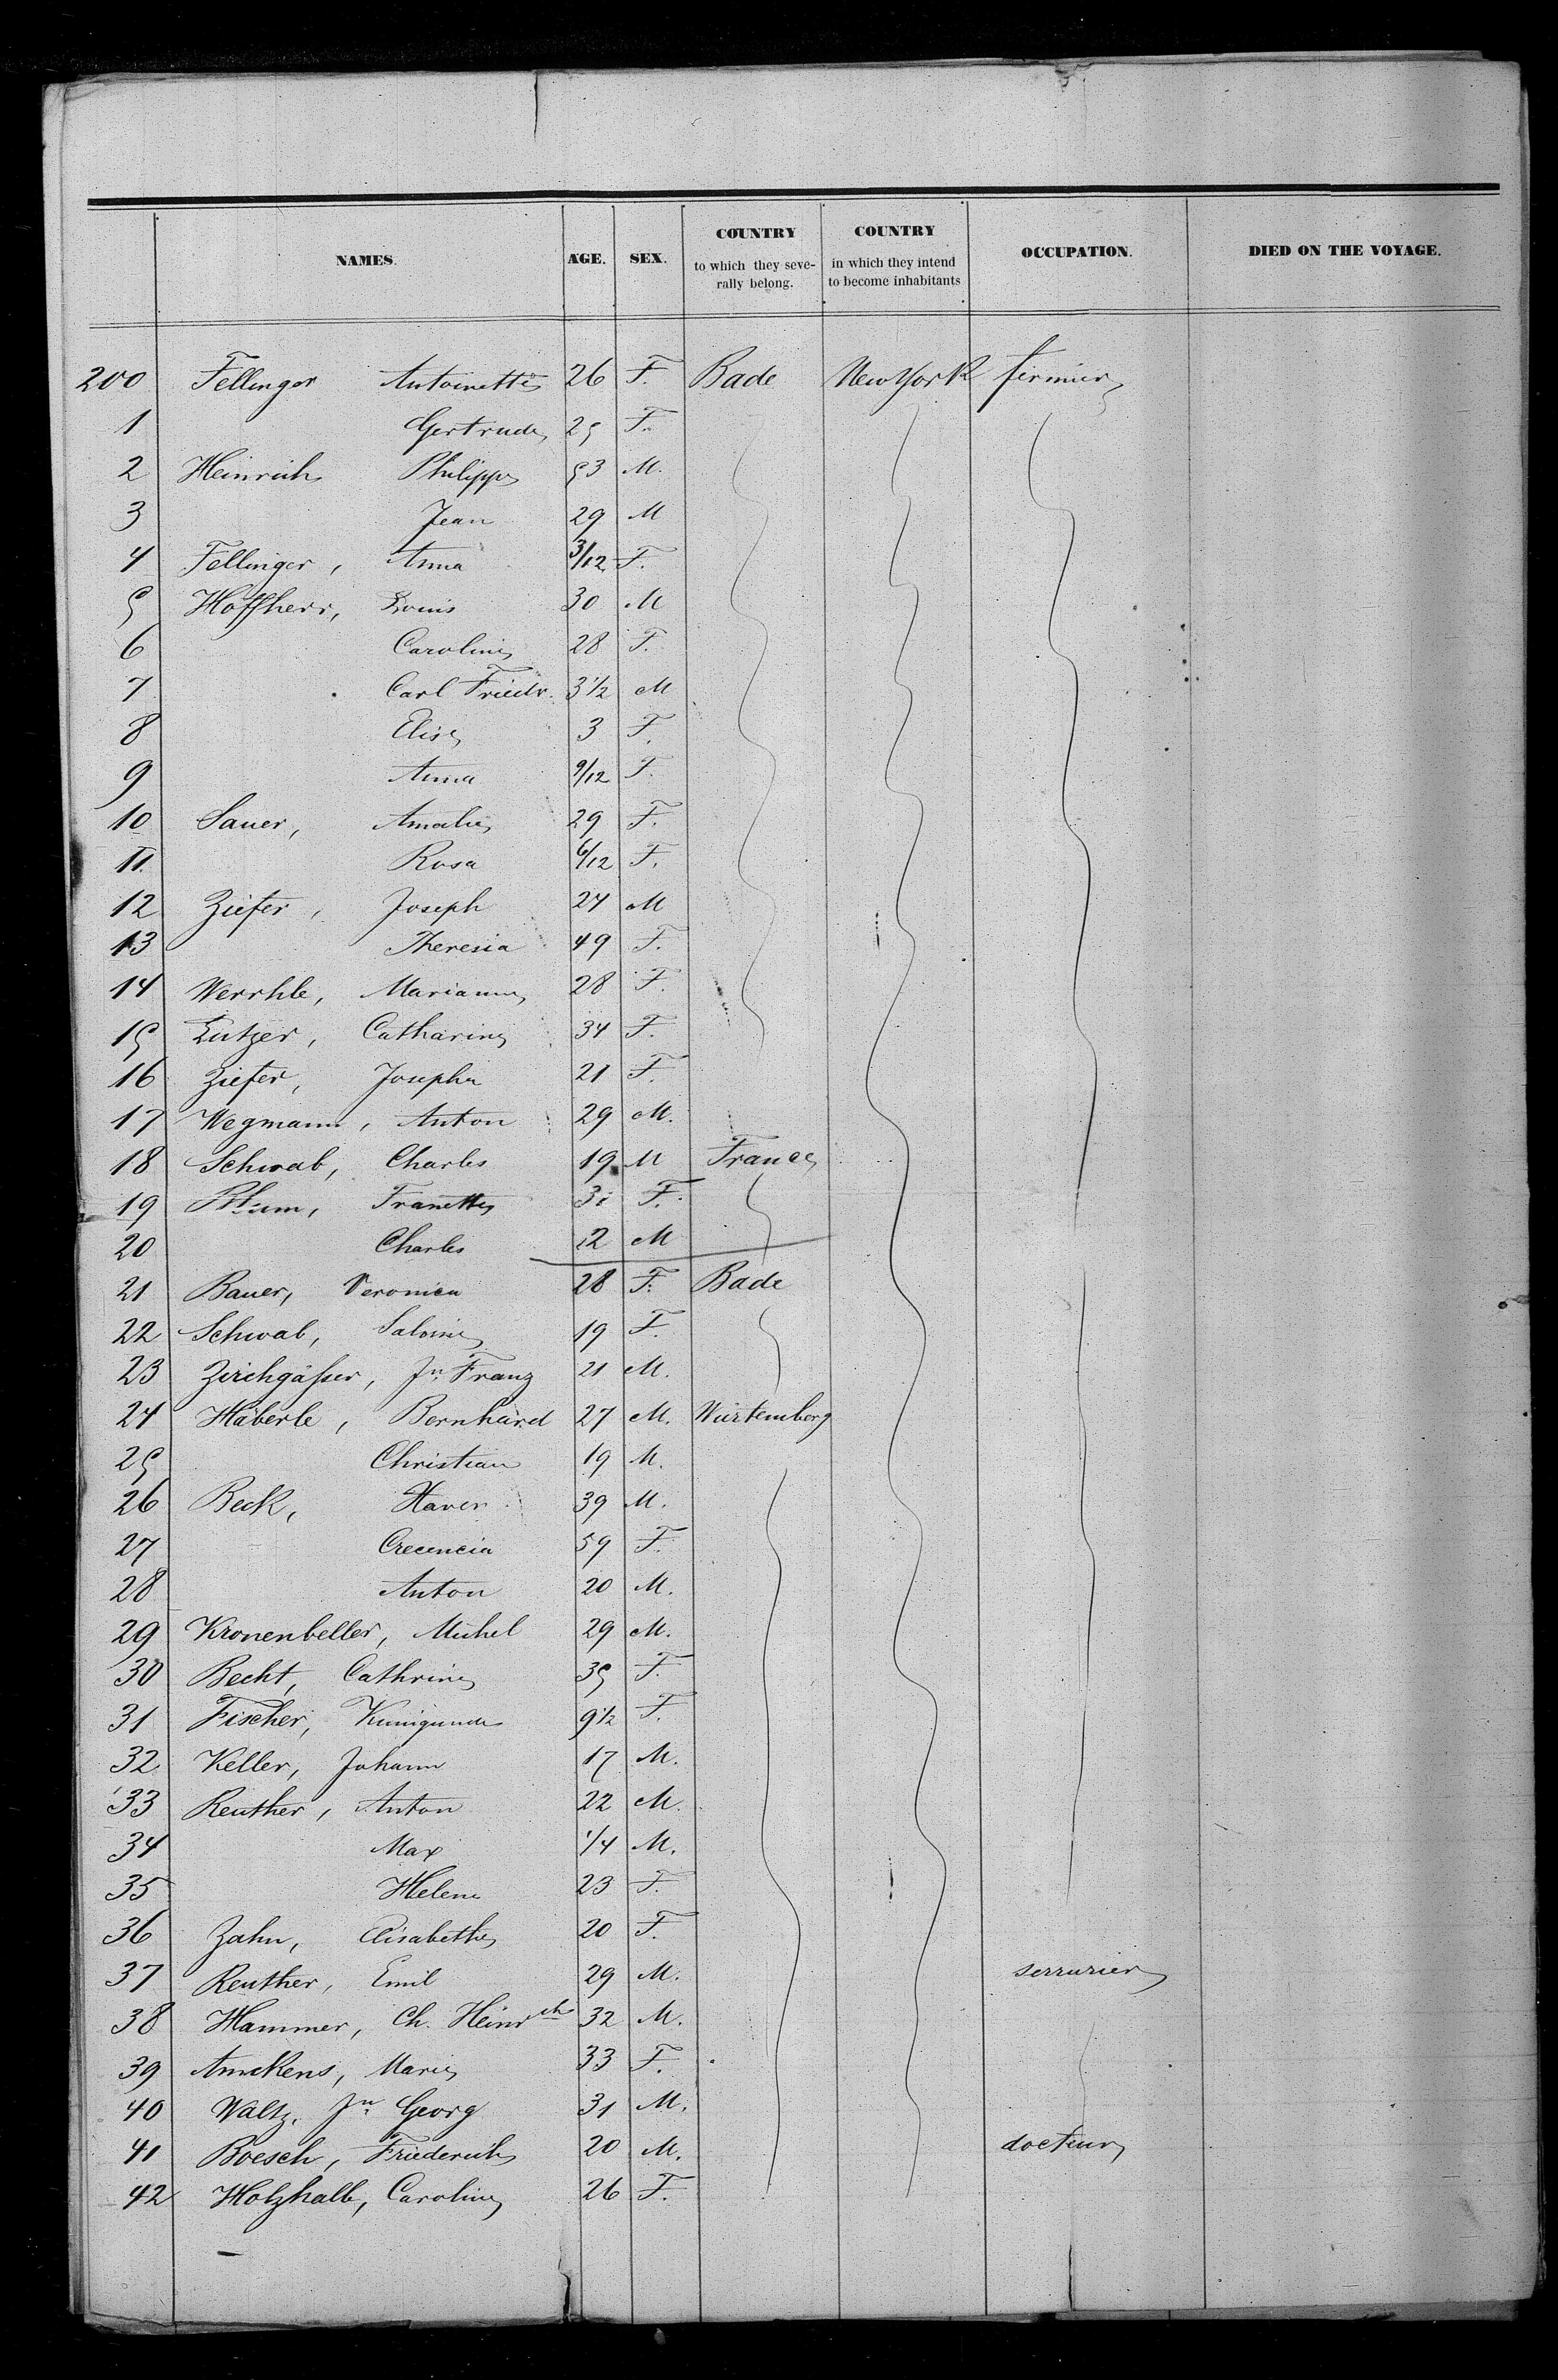 NAMES. AGE. SEX. COUNTRY to which they severally belong. COUNTRY in which they intend to become inhabitants OCCUPATION. DIED ON THE VOYAGE.
200 Fellinger Antoinette 26 F. Bade New York fermier
1 Gertrude 25 F.
2 Heinrich Philippe 53 M.
3 Jean 29 M
4 Fellinger, Anna 3/12 F.
5 Hoffherr, Louis 30 M
6 Caroline 28 F.
7 Carl Friedr. 3 1/2 M
8 Elise 3 F.
9 Anna 9/12 F.
10 Sauer, Amalie 29 F.
11. Rosa 6/12 F.
12 Ziefer, Joseph 24 M
13 Theresia 49 F.
14 Werrhle, Marianne 28 F.
15 Lutzer, Catharine 34 F.
16 Ziefer, Josepha 21 F.
17 Wegmann, Anton 29 M.
18 Schwab, Charles 19 M France
19 Franette F.
20 Charles 2 M
21 Bauer, Veronica 28 F. Bade
22 Schwab, Salomé 19 F.
23 Zirchgäßer, Jn. Franz 21 M.
24 Häberle, Bernhard 27 M. Würtemberg
25 Christian 19 M.
26 Beck, Xaver 39 M.
27 Crecencia 59 F.
28 Anton 20 M.
29 Kronenbeller, Michel 29 M.
30 Becht, Cathrine 35 F.
31 Fischer, Kunigunde 9 1/2 F.
32 Keller, Johann 17 M.
33 Reuther, Anton 22 M.
34 Max 1/4 M.
35 Helene 23 F.
36 Zahn, Elisabethe 20 F.
37 Reuther, Emil 29 M. serrurier
38 Hammer, Ch. Heinrch 32 M.
39 Amckens, Marie 33 F.
40 Waltz, Jn. Georg 31 M.
41 Boesch, Friederich 20 M. docteur
42 Holzhalb, Caroline 26 F.